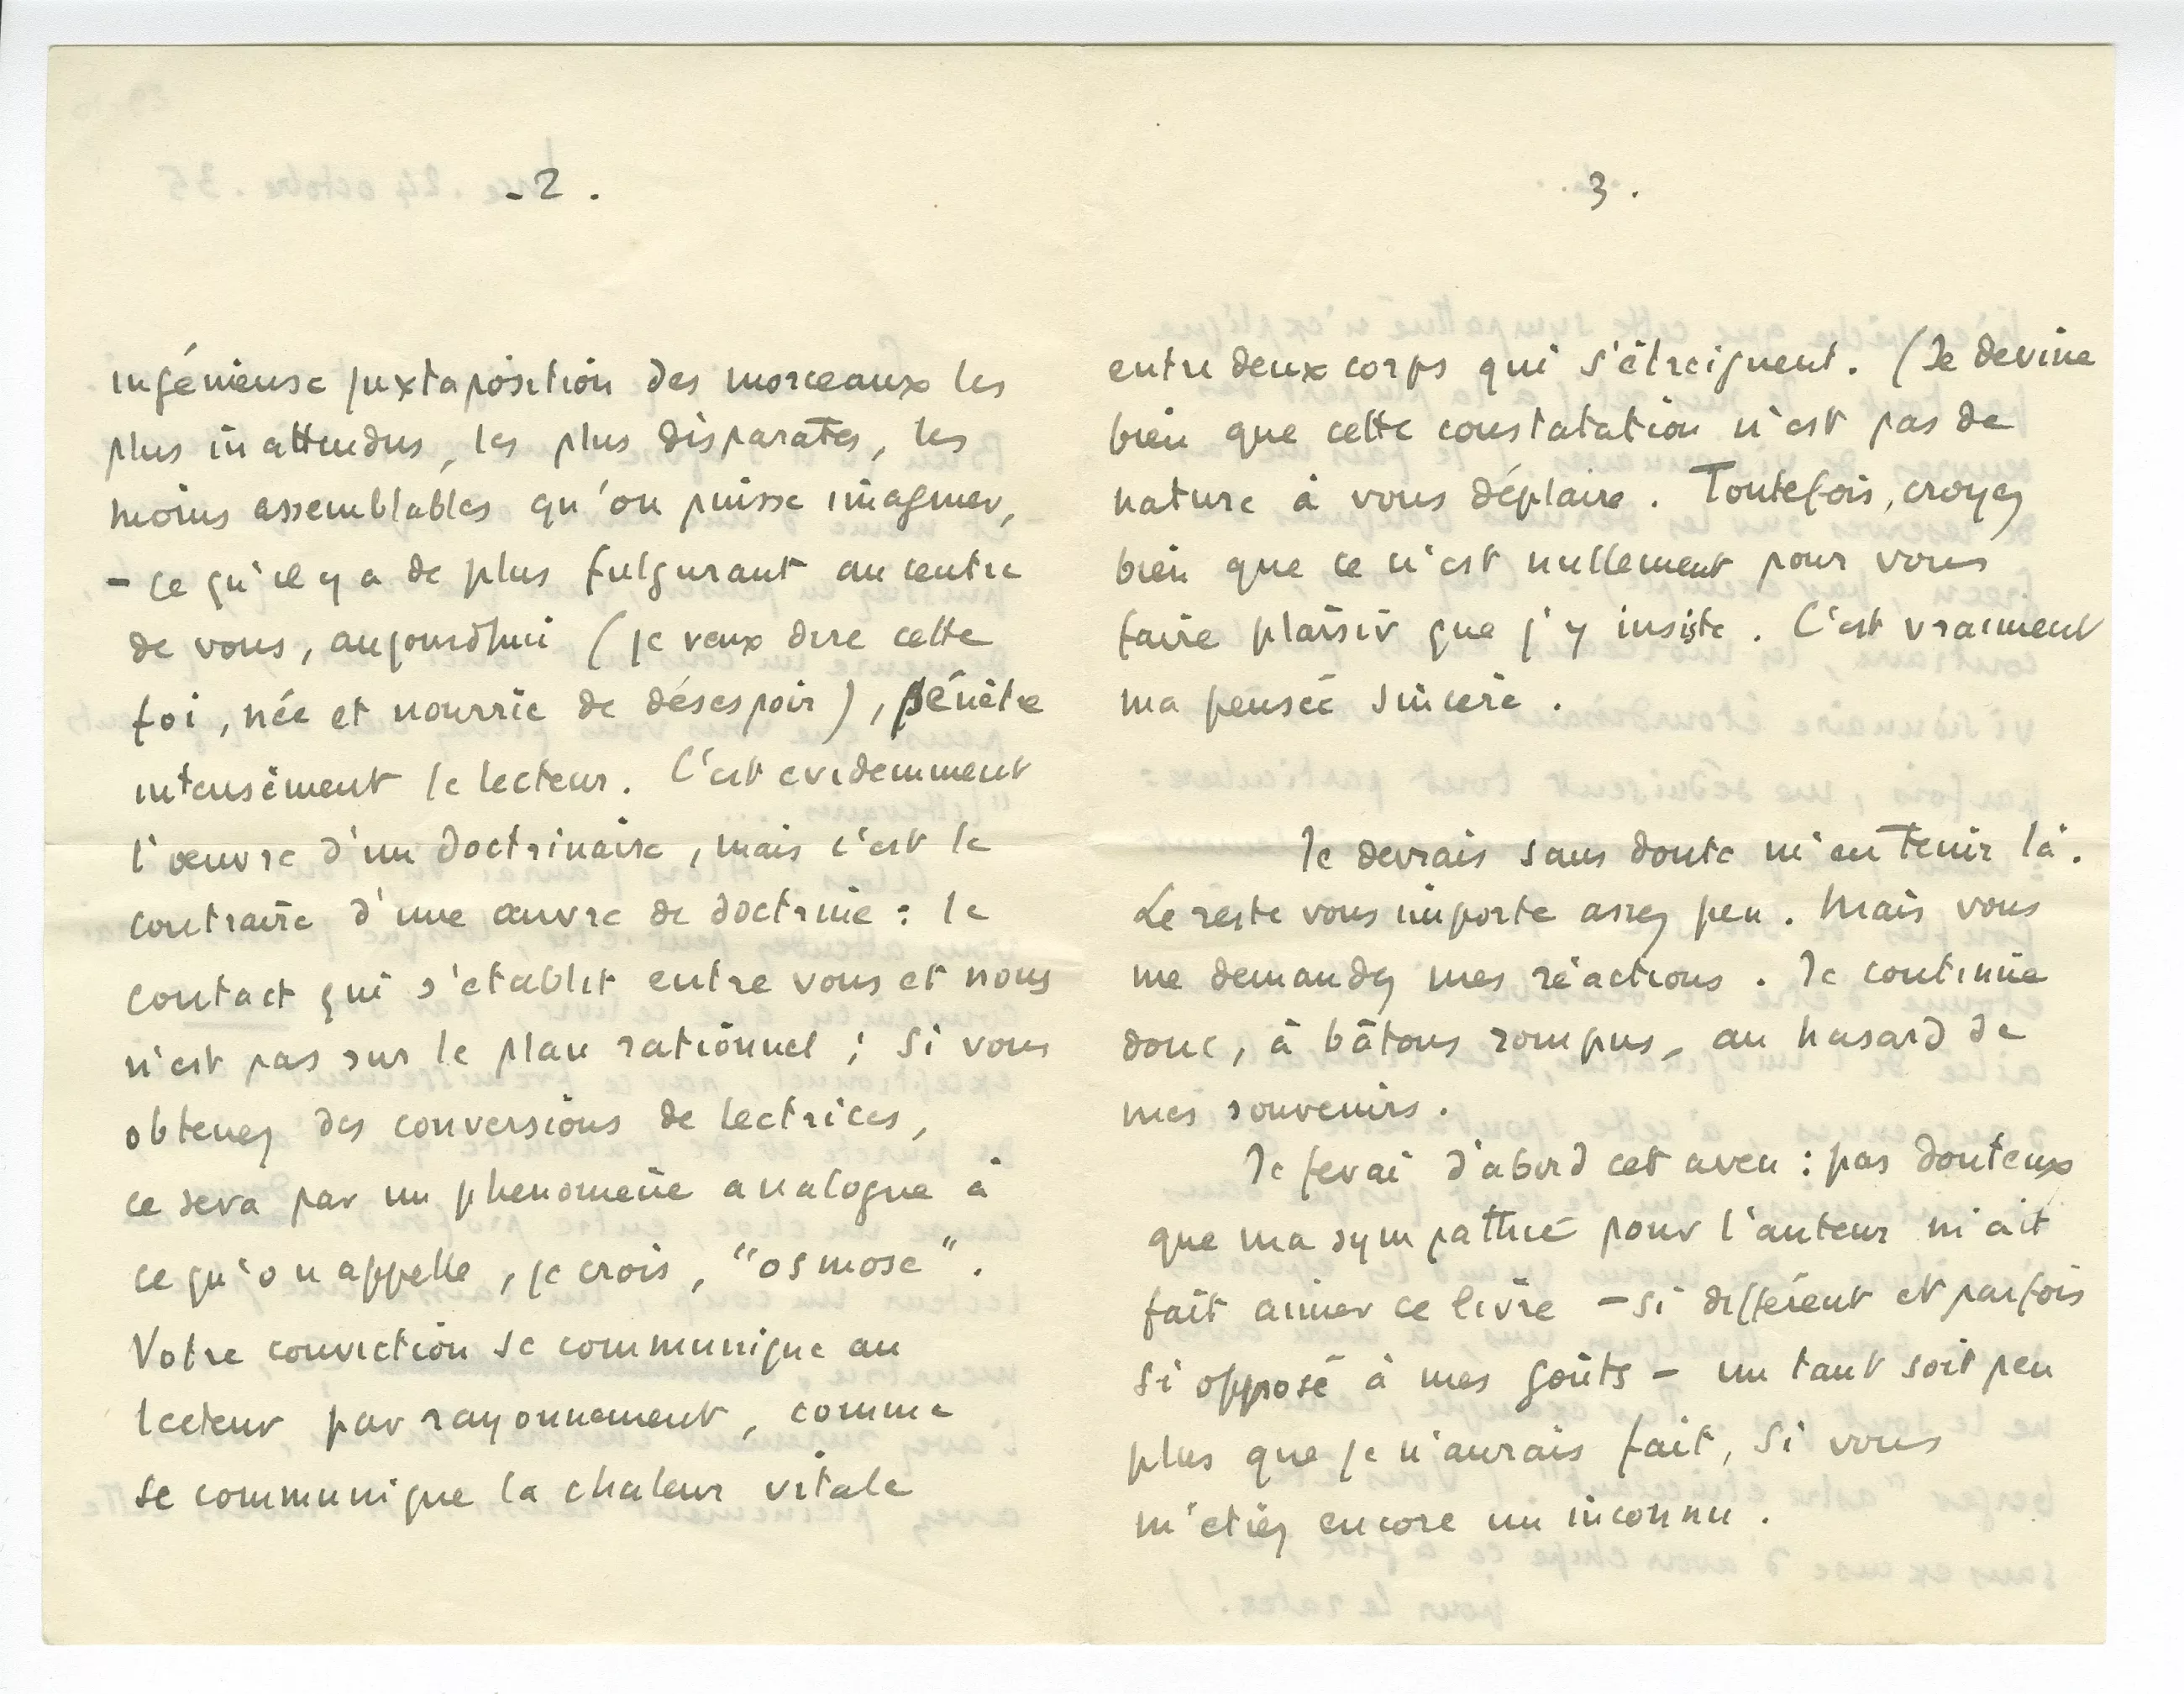 - 2 .
ingénieuse juxtaposition des morceaux les
plus inattendus, les plus disparates, les
moins assemblables qu'on puisse imaginer,
- ce qu'il y a de plus fulgurant au centre
de vous, aujourd'hui (je veux dire cette
foi, née et nourrie de désespoir), pénètre
intensément le lecteur. C'est evidemment
l'œuvre d'un doctrinaire, mais c'est le
contraire d'une œuvre de doctrine : le
contact qui s'etablit entre vous et nous
n'est pas sur le plan rationnel ; si vous
obtenez des conversions de lectrices,
ce sera par un phenomène analogue à
ce qu'on appelle, je crois, "osmose".
Votre conviction se communique au
lecteur par rayonnement, comme
se communique la chaleur vitale
3 .
entre deux corps qui s'étreignent. (Je devine
bien que cette constatation n'est pas de
nature à vous déplaire. Toutefois, croyez
bien que ce n'est nullement pour vous
faire plaisir que j'y insiste. C'est vraiment
ma pensée sincère.
Je devrais sans doute m'en tenir là.
Le reste vous importe assez peu. Mais vous
me demandez mes réactions. Je continue
donc, à bâtons rompus, au hasard de
mes souvenirs.
Je ferai d'abord cet aveu : pas douteux
que ma sympathie pour l'auteur m'ait
fait aimer ce livre - si différent et parfois
si opposé à mes goûts - un tant soit peu
plus que je n'aurais fait, si vous
m'etiez encore un inconnu.